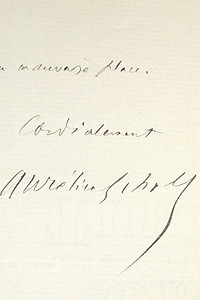 mauvaise place.
Cordialement
Aurélien Scholl